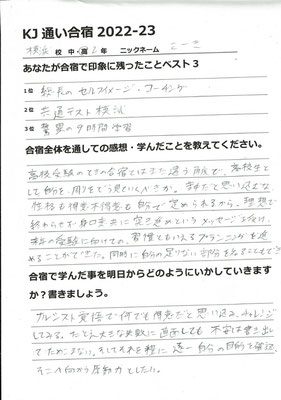 KJ 通い合宿 2022-23
横浜 校 中・高 2 年 ニックネーム こーき
あなたが合宿で印象に残ったことベスト3
1位 塾長のセルフイメージ・コーチング
2位 共通テスト模試
3位 驚異の9時間学習
合宿全体を通しての感想・学んだことを教えてください。
高校受験のときの合宿とはまた違う角度で、高校生と
して自分を、周りをどう見ていくべきか。
性格も得意不得意も自分で定められるから、理想で
終わらせず
というメッセージを受け、
来年の受験に向けての、習慣ともいえるプランニングを進
めることができた。同時に自分の足りない部分を
合宿で学んだ事を明日からどのようにいかしていきます
か?書きましょう。
ナルシスト覚悟で何でも得意だと思い込み、チャレンジ
してみる。たとえ大きな失敗に直面しても不安は書き出し
てためこまない。そしてそれを糧に逐一自分の目的を確認、
そこへ向かう原動力としたい。